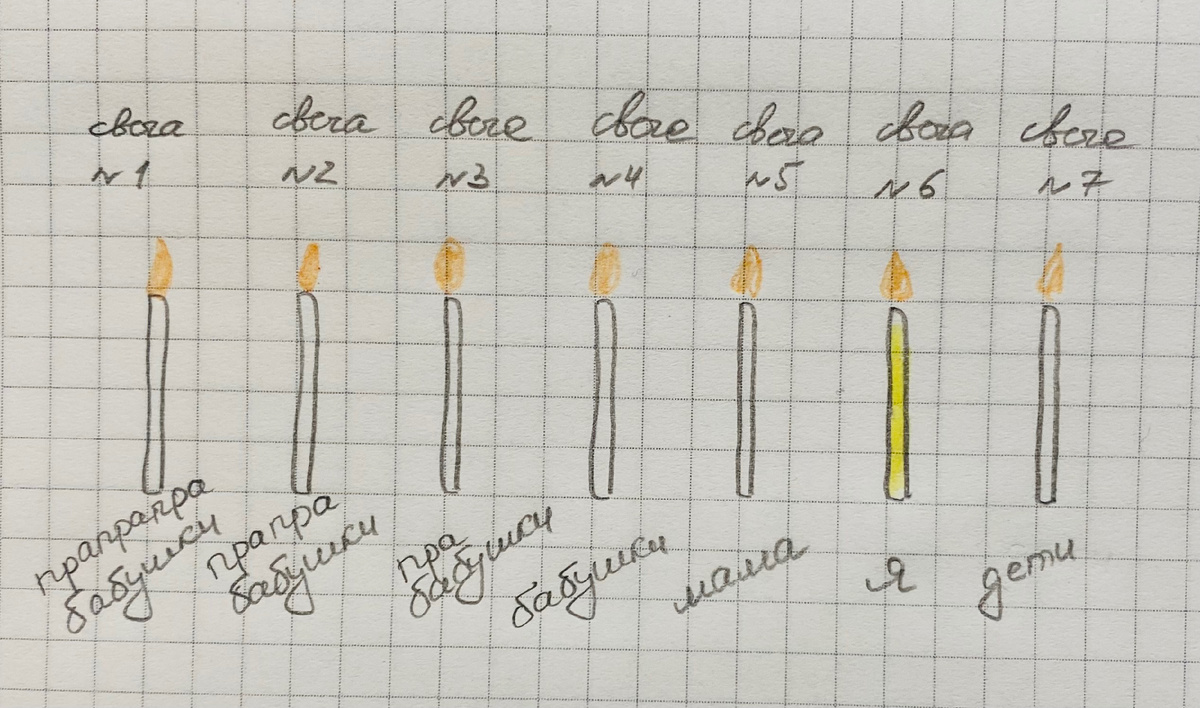 свеча свеча свече свече свеча свеча свече
№1 №2 №3 №4 №5 №6 №7
прапрапра
бабушки
прапра
бабушки
пра
бабушки
бабушки
мама
я
дети